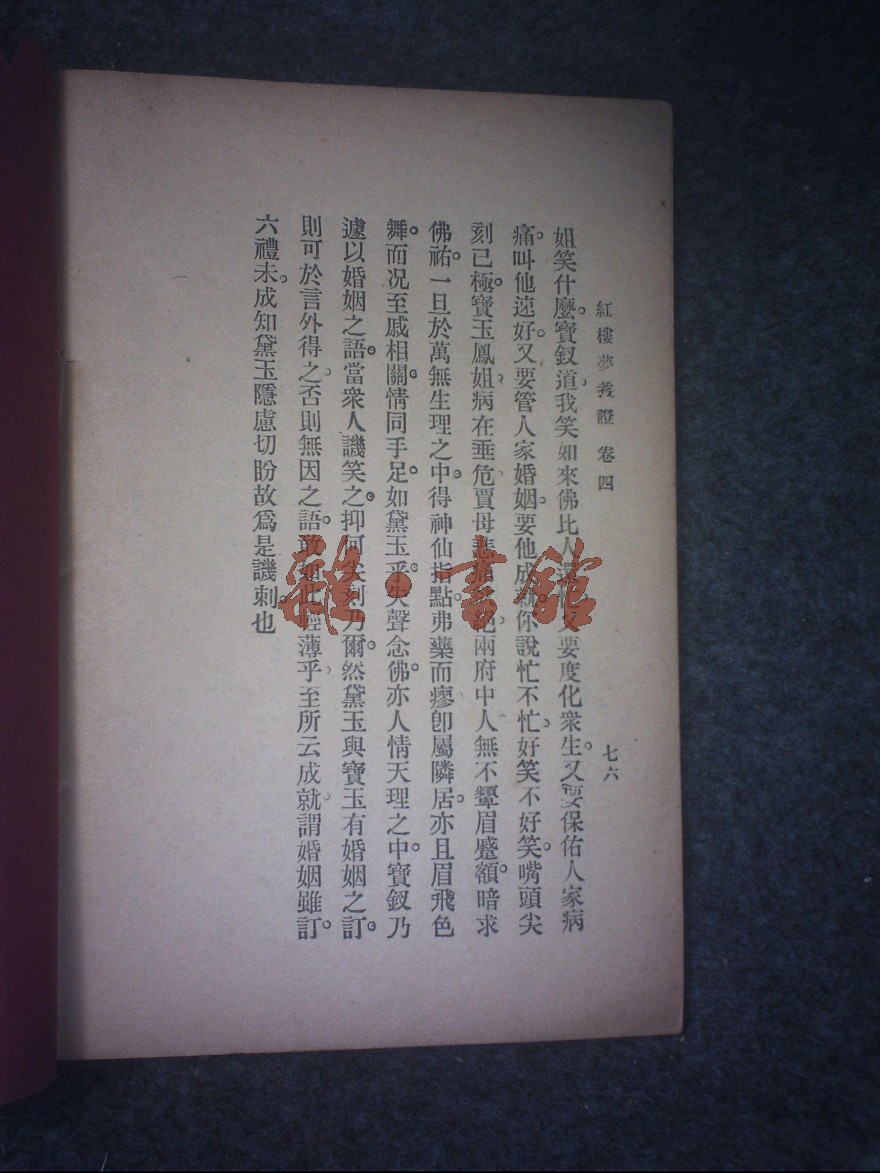 紅樓夢考證 卷四
七六
姐笑什麼。寶釵道、我笑如來佛比人還忙、又要度化衆生。又要保佑人家病
痛。叫他速好。又要管人家婚姻。要他成就。你說忙不忙、好笑不好笑。嘴頭尖
刻已極。寶玉鳳姐、病在垂危、賈母悲痛、絕、兩府中人無不顰眉蹙額。暗求
佛祐。一旦於萬無生理之中。得神仙指點。弗藥而瘳、卽屬隣居。亦且眉飛色
舞。而况至戚相關。情同手足。如黛玉乎。失聲念佛。亦人情天理之中。寶釵乃
遽以婚姻之語。當衆人譏笑之。抑何尖刻乃爾。然黛玉與寶玉有婚姻之訂。
則可於言外得之、否則無因之語。敢如此輕薄乎、至所云成就、謂婚姻雖訂。
六禮未。成知黛玉隱慮切盼故爲是譏刺。也
雜·書館